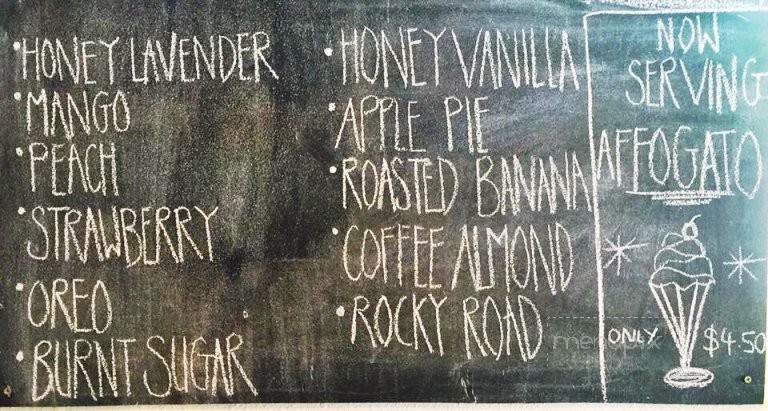 HONEY LAVENDER
MANGO
PEACH
STRAWBERRY
OREO
BURNT SUGAR
HONEY VANILLA
APPLE PIE
ROASTED BANANA
COFFEE ALMOND
ROCKY ROAD
NOW
SERVING
AFFOGATO
ONLY $4.50